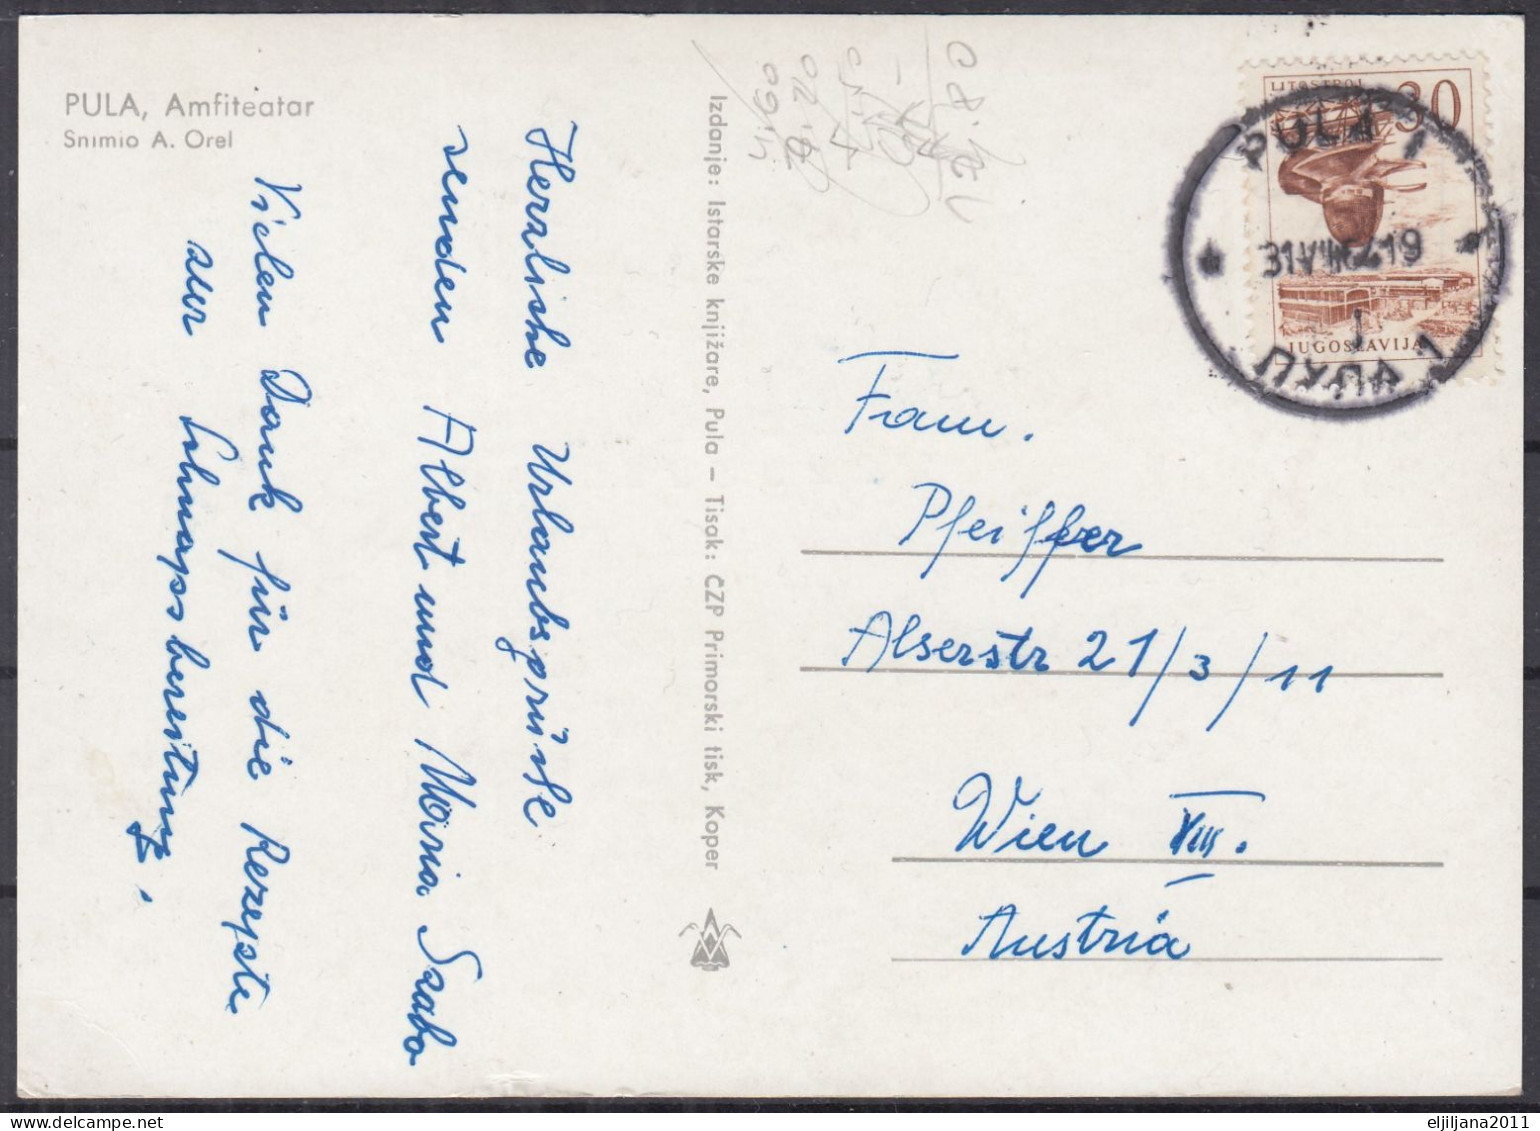 PULA, Amfiteatar
Snimio A. Orel
Herzlishe Urlaubsgrüße
senden Albert und Maria Szabo
Vielen Dank für die Rezepte
zur Schnapsbereitung.
Izdanje: Istarske knjižare, Pula – Tisak: ČZP Primorski tisk, Koper
LITOSTROJ
30
JUGOSLAVIJA
PULA 1
31 VII 64 19
1
ПУЛА 1
Fram.
Pfeiffer
Alserstr 21/3/11
Wien VIII.
Austria
eljiljana2011